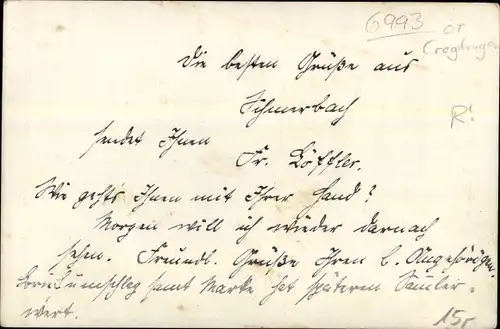 6993 or
Creglingen
Die besten Grüße aus
Schmerbach
R!
sendet Ihnen
Fr. Löffler.
Wie geht's Ihnen mit Ihrer Hand?
Morgen will ich wieder darnach
sehen. Freundl. Grüße Ihren l. Angehörigen.
Briefumschlag samt Marke hat späteren Samler-
wert.
15,-